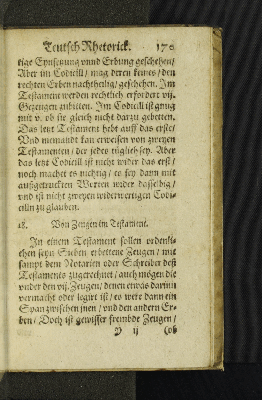 Teutsch Rhetorick. 170
tige Eynsetzung vnnd Erbung geschehen/
Aber im Codicill/ mag deren keines/ den
rechten Erben nachtheilig/ geschehen. Im
Testament werden rechtlich erfordert vij.
Gezeugen zubitten. Im Codicill ist gnug
mit v. ob sie gleich nicht darzu gebetten.
Das letzt Testament hebt auff das erste/
Vnd niemandt kan erweisen von zweyen
Testamenten/ der jedes tüglich sey. Aber
das letzt Codicill ist nicht wider das erst/
noch machet es nichtig/ es sey dann mit
außgetruckten Worten wider dasselbig/
vnd ist nicht zweyen widerwertigen Codi-
cilln zu glauben.
18. Von Zeugen im Testament.
In einem Testament sollen ordenli-
chen seyn Sieben erbettene Zeugen/ mit
sampt dem Notarien oder Schreiber deß
Testaments zugerechnet/ auch mögen die
vnder den vij. Zeugen/ denen etwas darinn
vermacht oder legirt ist/ es were dann ein
Span zwischen jnen/ vnd den andern Er-
ben/ Doch ist gewisser frembde Zeugen/
Y ij (ob